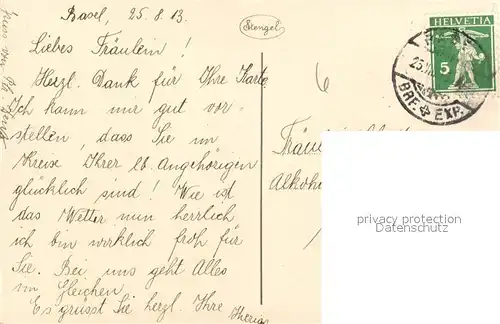 Basel, 25.8.13.
Liebes Fräulein!
Herzl. Dank für Ihre Karte
Ich kann mir gut vor-
stellen, dass Sie im
Kreise Ihrer lb. Angehörigen
glücklich sind! Wie ist
das Wetter nun herrlich
ich bin wirklich froh für
Sie. Bei uns geht Alles
im Gleichen.
Es grüsst Sie herzl. Ihre
Stengel
6
HELVETIA
5
25.VIII
BRF. EXP.
Fräulein
Alkoho
privacy protection
Datenschutz